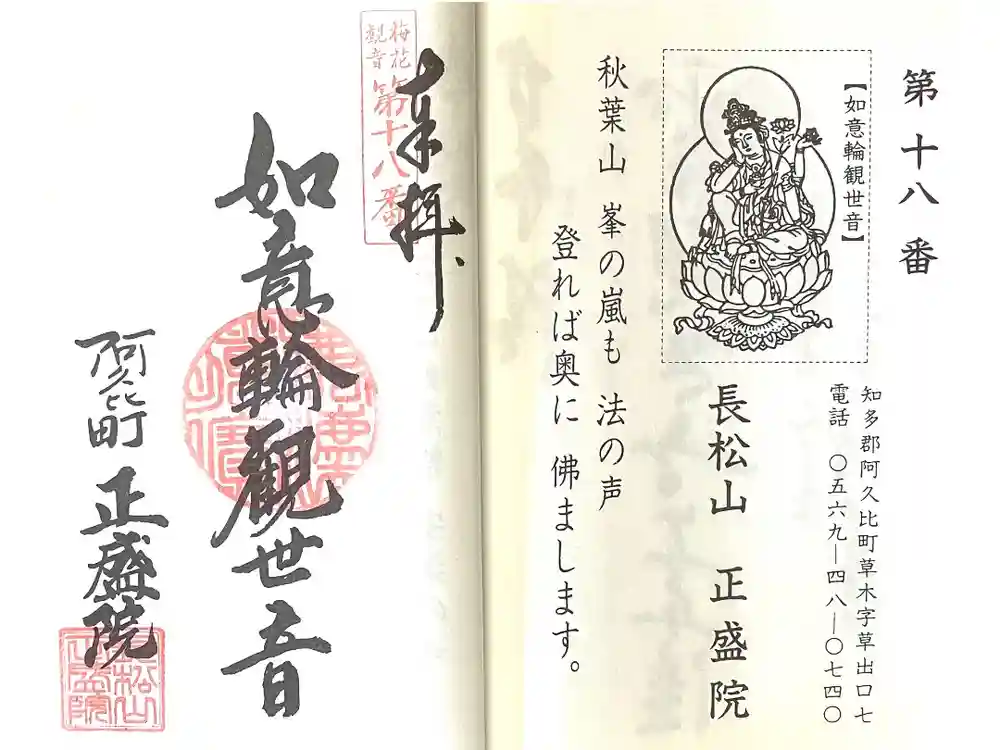 第十八番
【如意輪観世音】
知多郡阿久比町草木字草出口七
電話 〇五六九―四八―〇七四〇
長松山 正盛院
秋葉山 峯の嵐も 法の声
登れば奥に 佛まします。
奉拝、
梅花
観音
第十八番
如意輪観世音
阿久比町 正盛院
長松山
正盛院